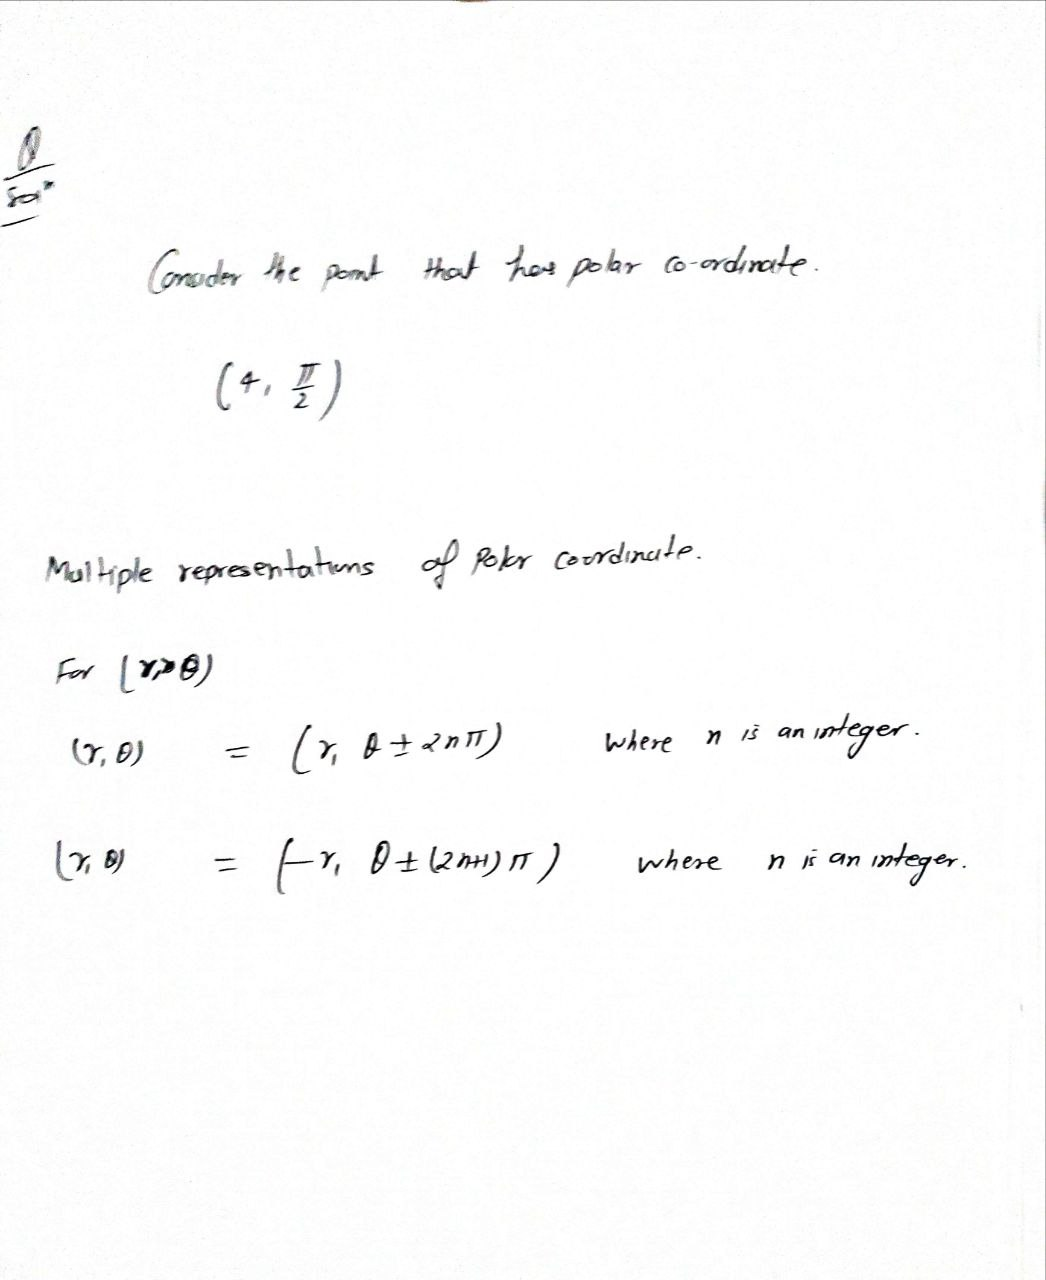 Q
Soln
Consider the point that has polar co-ordinate.
(4, π/2)
Multiple representations of Polar coordinate.
For (r, θ)
(r, θ) = (r, θ ± 2nπ) where n is an integer.
(r, θ) = (-r, θ ± (2n+1) π) where n is an integer.